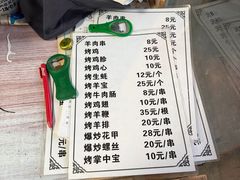 羊肉串 8元
烤鸡 25元
烤鸡胗 10元
烤鸡心 10元
烤生蚝 12元/个
烤羊宝 25元/个
烤牛肉肠 8元/串
烤鸡翅 10元/串
烤羊鞭 35元/根
烤羊排 20元/串
爆炒花甲 28元/串
爆炒螺丝 20元/串
烤掌中宝 10元/串